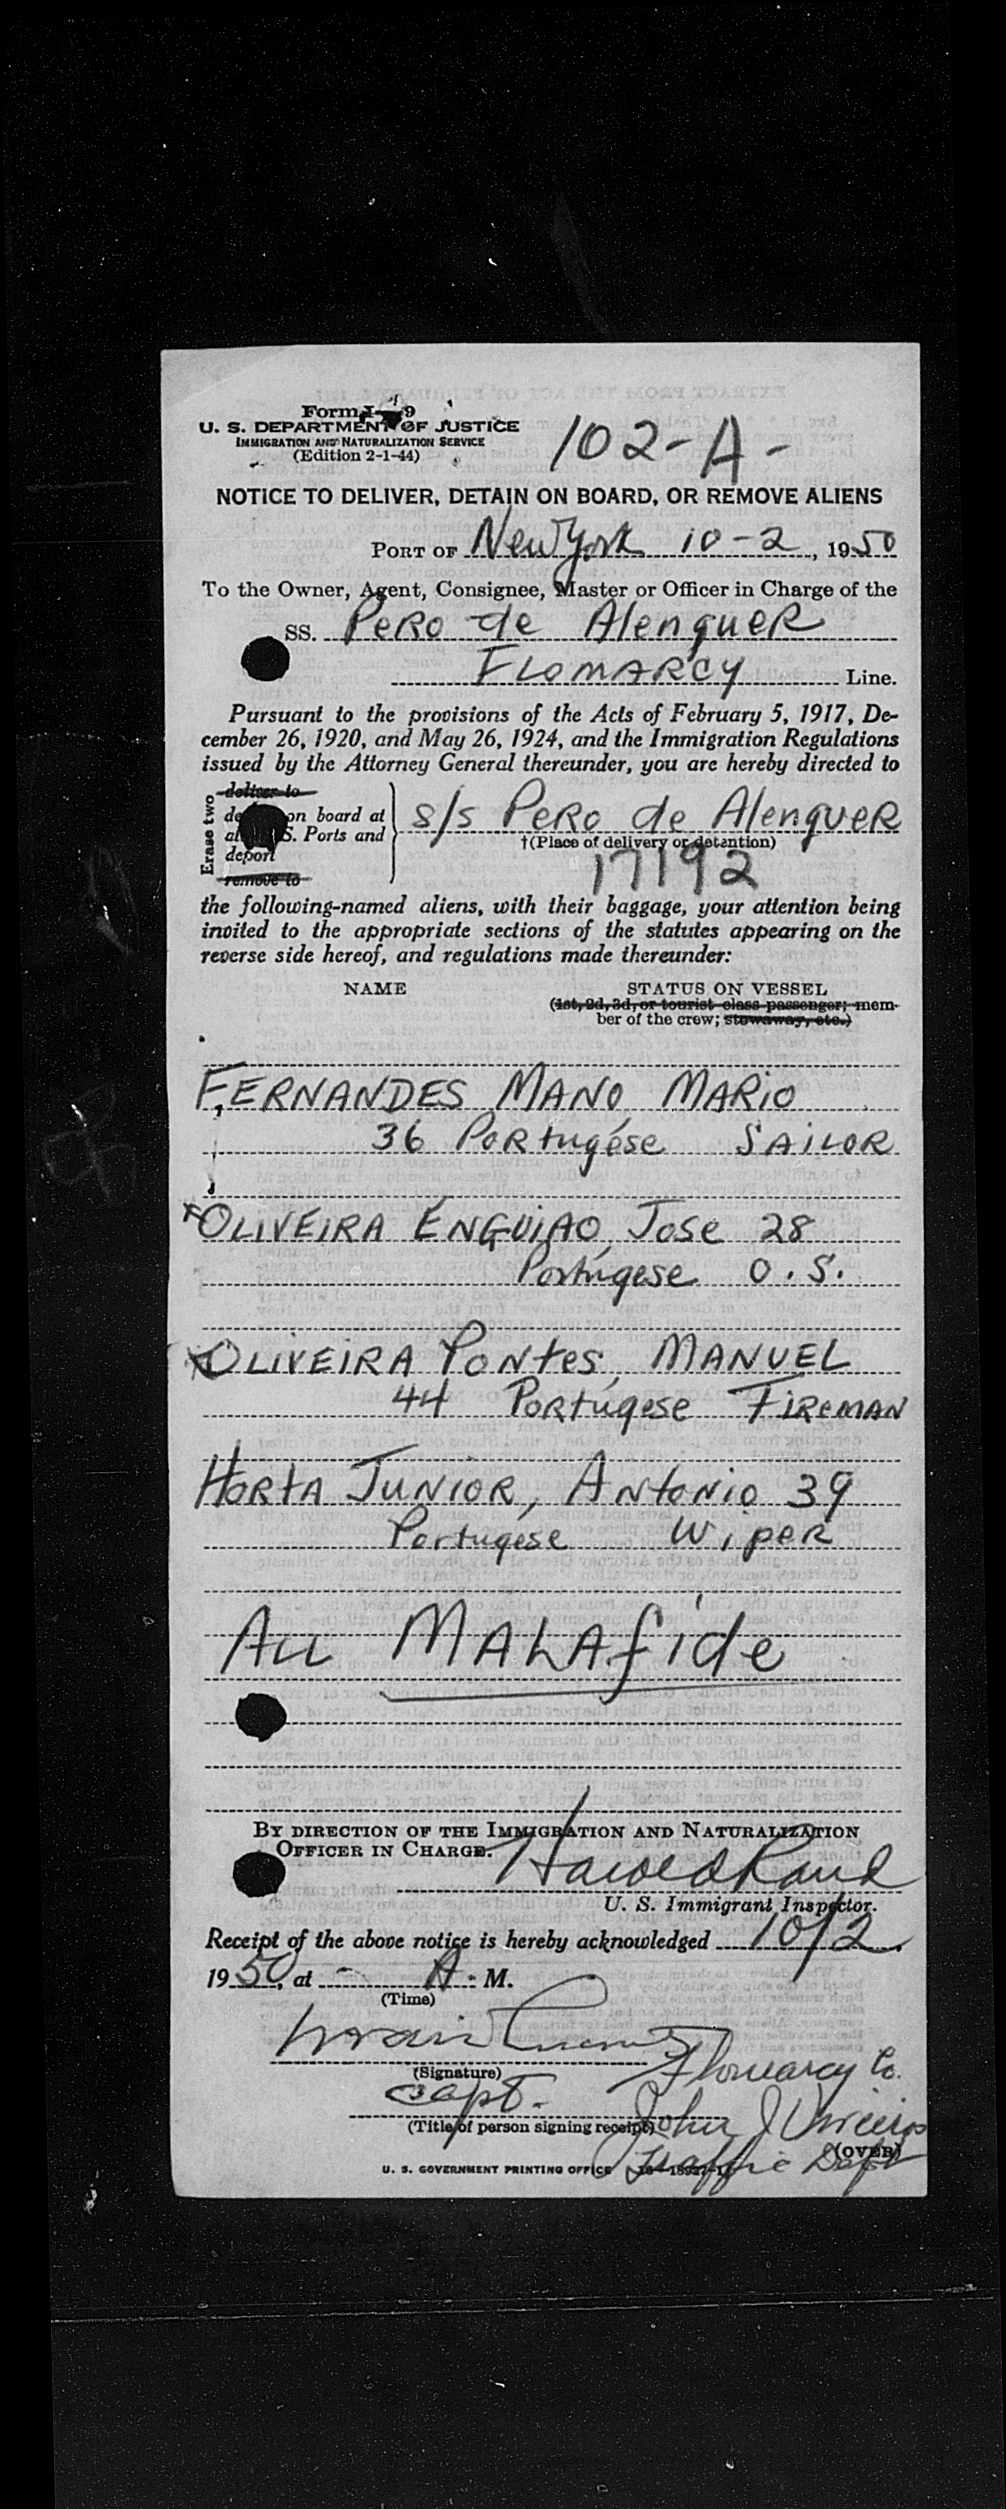 Form I- 9
U. S. DEPARTMENT OF JUSTICE
IMMIGRATION AND NATURALIZATION SERVICE
(Edition 2-1-44)
102-A-
NOTICE TO DELIVER, DETAIN ON BOARD, OR REMOVE ALIENS
PORT OF New York 10-2, 1950
To the Owner, Agent, Consignee, Master or Officer in Charge of the
SS. Pero de Alenquer
FLOMARCY Line.
Pursuant to the provisions of the Acts of February 5, 1917, De-
cember 26, 1920, and May 26, 1924, and the Immigration Regulations
issued by the Attorney General thereunder, you are hereby directed to
Erase two
deliver to
on board at
S. Ports and
deport
remove to
s/s Pero de Alenquer
†(Place of delivery or detention)
17192
the following-named aliens, with their baggage, your attention being
invited to the appropriate sections of the statutes appearing on the
reverse side hereof, and regulations made thereunder:
NAME STATUS ON VESSEL
(1st, 2d, 3d, or tourist class passenger; mem-
ber of the crew; stowaway, etc.)
FERNANDES MANO, MARIO
36 Portugese SAILOR
OLIVEIRA ENGUIAO, Jose 28
Portugese O.S.
OLIVEIRA PONtes, MANUEL
44 Portugese FIREMAN
HORTA JUNIOR, ANtONiO 39
Portugese WIPER
ALL MALAfide
BY DIRECTION OF THE IMMIGRATION AND NATURALIZATION
OFFICER IN CHARGE.
Harold Rand
U. S. Immigrant Inspector.
Receipt of the above notice is hereby acknowledged 10/2,
1950, at - A. M.
(Time)
(Signature)
Flomarcy Co.
Capt.
(Title of person signing receipt)
John J
(OVER)
Traffic Dept
U. S. GOVERNMENT PRINTING OFFICE